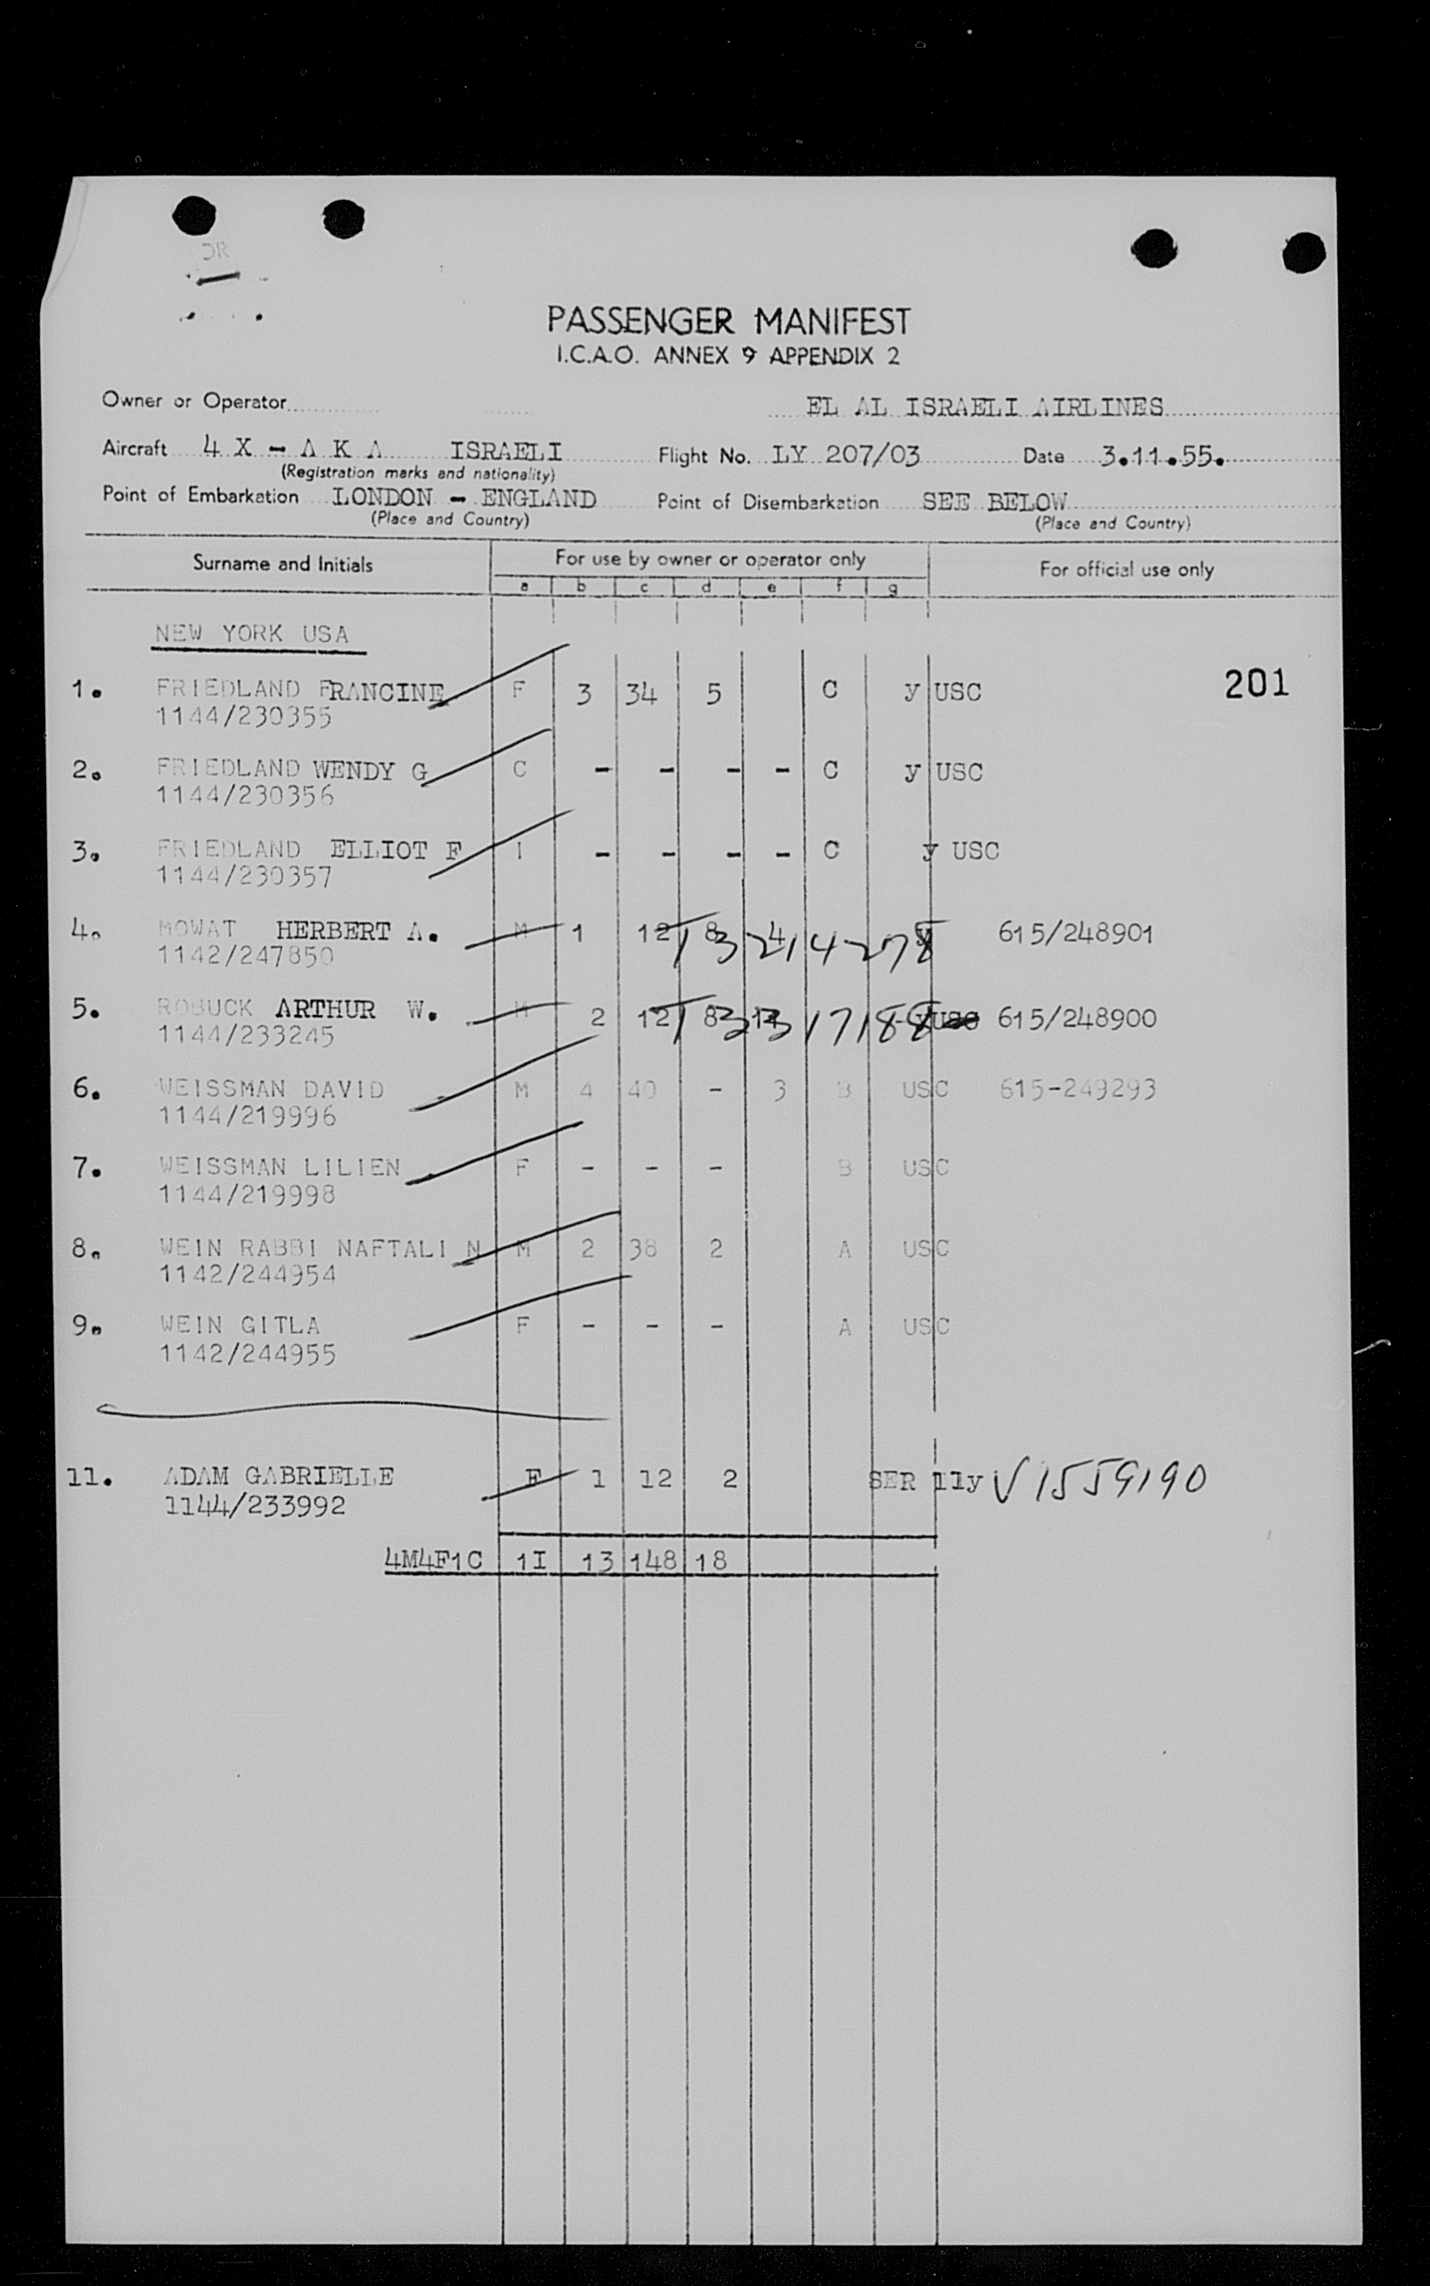 PASSENGER MANIFEST
I.C.A.O. ANNEX 9 APPENDIX 2
Owner or Operator EL AL ISRAELI AIRLINES
Aircraft 4 X - A K A ISRAELI Flight No. LY 207/03 Date 3.11.55.
(Registration marks and nationality)
Point of Embarkation LONDON - ENGLAND Point of Disembarkation SEE BELOW
(Place and Country) (Place and Country)
Surname and Initials For use by owner or operator only For official use only
a b c d e f g
NEW YORK USA
201
1. FRIEDLAND FRANCINE F 3 34 5 C y USC
1144/230355
2. FRIEDLAND WENDY G C - - - - C y USC
1144/230356
3. FRIEDLAND ELLIOT F I - - - - C y USC
1144/230357
4. MOWAT HERBERT A. M 1 12 8 4 y 615/248901
1142/247850
5. ROBUCK ARTHUR W. M 2 12 8 615/248900
1144/233245
6. WEISSMAN DAVID M 4 40 - 3 B USC 615-249293
1144/219996
7. WEISSMAN LILIEN F - - - B USC
1144/219998
8. WEIN RABBI NAFTALI N M 2 38 2 A USC
1142/244954
9. WEIN GITLA F - - - A USC
1142/244955
11. ADAM GABRIELLE F 1 12 2 SER 11y V 1559190
1144/233992
4M4F1C 1I 13 148 18